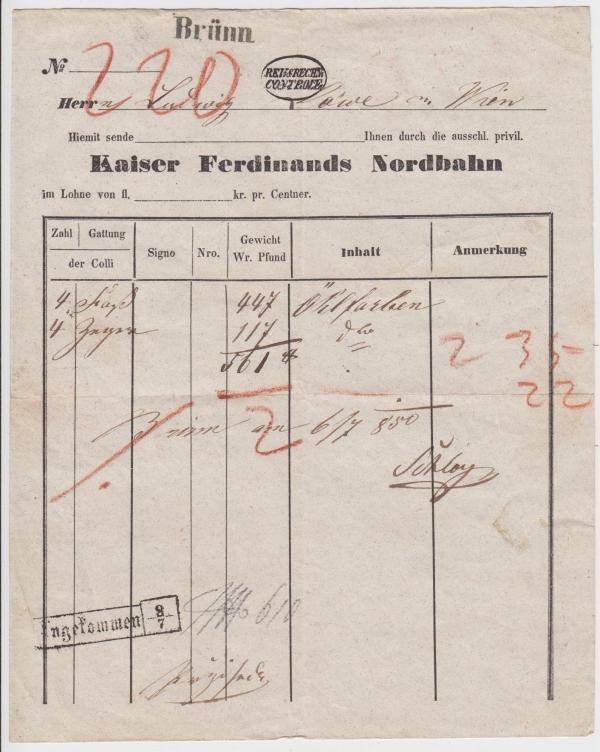 Brünn
No 220
REIHSRECHN
CONTROLE
Herrn Ludwig Löwe in Wien
Hiemit sende Ihnen durch die ausschl. privil.
Kaiser Ferdinands Nordbahn
im Lohne von fl. kr. pr. Centner.
Zahl Gattung der Colli Signo Nro. Gewicht Wr. Pfund Inhalt Anmerkung
4 Faß 447 Öhlfarben
4 117 dto
561 ℔ 2 35
22
Brünn am 6/7 850
2
Angekommen 8/7
610